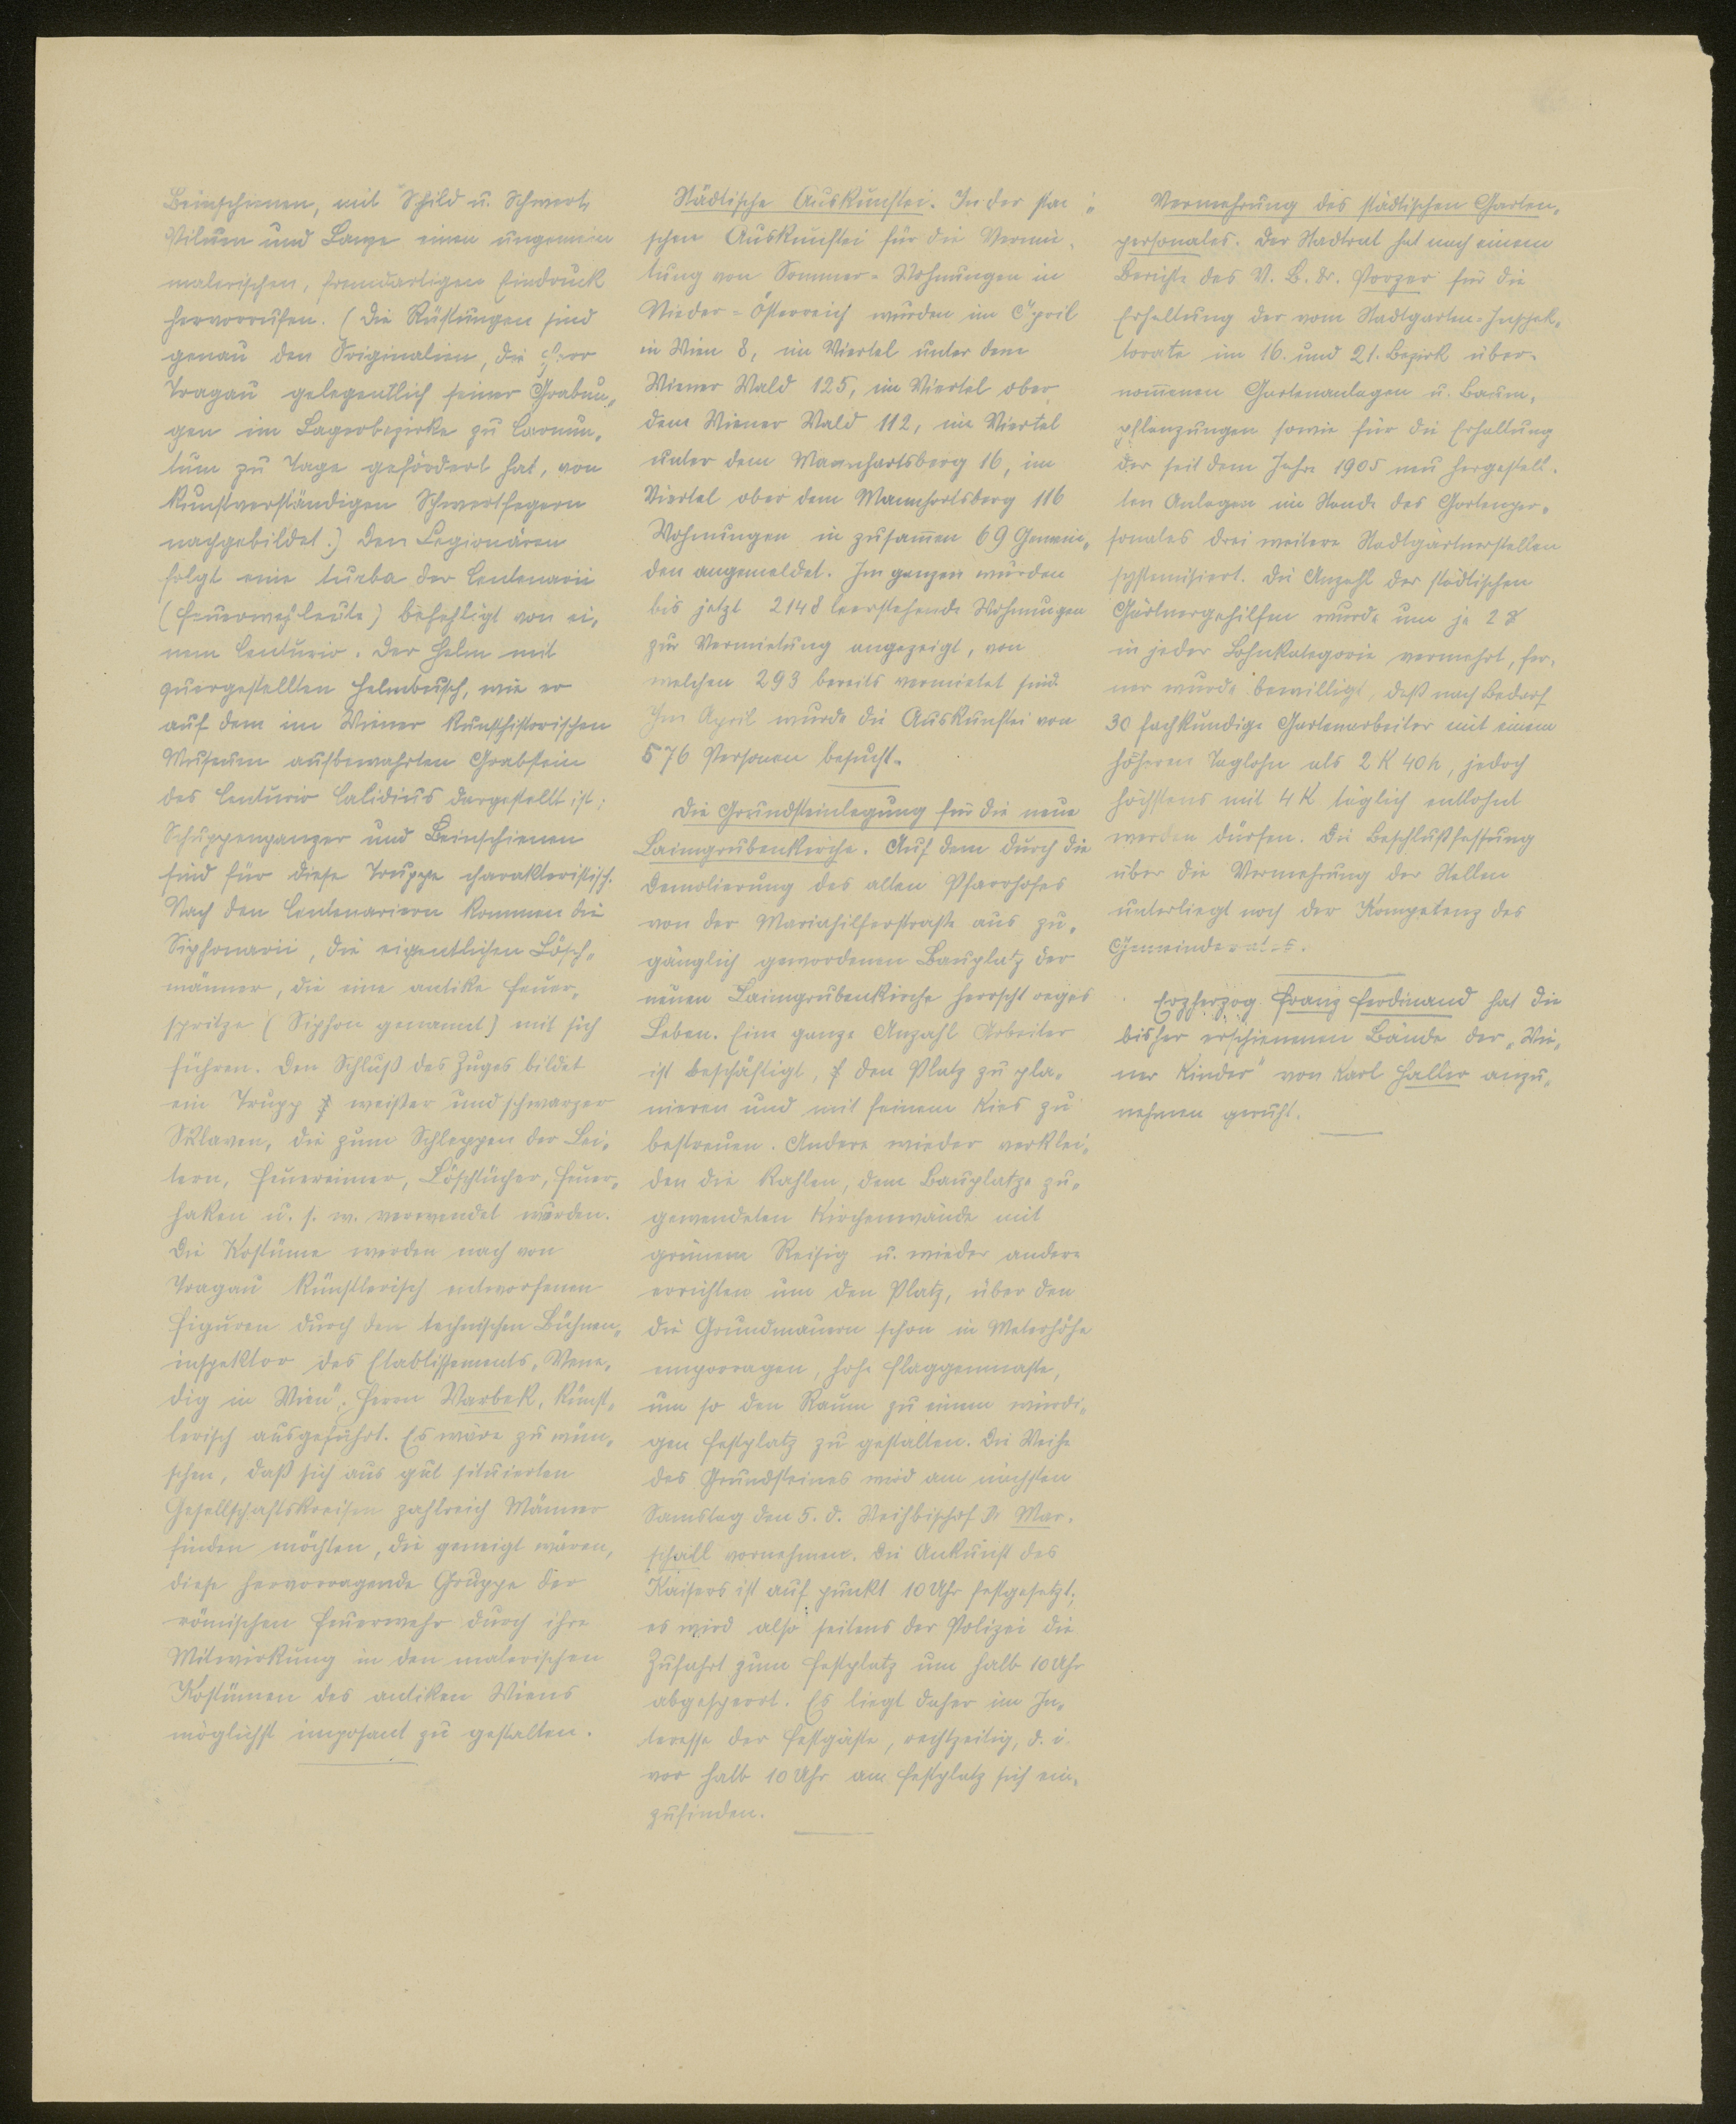 Beinschienen, mit Schild u. Schwert,
Pilum und Lanze einen ungemein
malerischen, fremdartigen Eindruck
hervorrufen. (Die Rüstungen sind
genau den Originalien, die Herr
Tragau gelegentlich seiner Grabun„
gen im Lagerbezirke zu Carnun„
tum zu Tage gefördert hat, von
kunstverständigen Schwertfegern
nachgebildet.) Den Legionären
folgt eine turba der Centenarii
(Feuerwehrleute) befehligt von ei„
nem Centurio. Der Helm mit
quergestellten Helmbusch, wie er
auf dem im Wiener kunsthistorischen
Museum aufbewahrten Grabstein
des Centurio Calidius dargestellt ist;
Schuppenpanzer und Beinschienen
sind für diese Truppe charakteristisch.
Nach den Centenariern kommen die
Siphonarii, die eigentlichen Lösch„
männer, die eine antike Feuer„
spritze (Siphon genannt) mit sich
führen. Den Schluß des Zuges bildet
ein Trupp weißer und schwarzer
Sklaven, die zum Schleppen der Lei„
tern, Feuereimer, Löschtücher, Feuer„
haken u. s. w. verwendet wurden.
Die Kostüme werden nach von
Tragau künstlerisch entworfenen
Figuren durch den technischen Bühnen„
inspektor des Etablissements „Vene„
dig in Wien", Herrn Warbek, künst„
lerisch ausgeführt. Es wäre zu wün„
schen, daß sich aus gut situierten
Gesellschaftskreisen zahlreich Männer
finden möchten, die geneigt wären,
diese hervorragende Gruppe der
römischen Feuerwehr durch ihre
Mitwirkung in den malerischen
Kostümen des antiken Wiens
möglichst imposant zu gestalten.
Städtische Auskunftei. In der städti„
schen Auskunftei für die Vermie„
tung von Sommer-Wohnungen in
Nieder-Österreich wurden im April
in Wien 8, im Viertel unter dem
Wiener Wald 125, im Viertel ober
dem Wiener Wald 112, im Viertel
unter dem Mannhartsberg 16, im
Viertel ober dem Mannhartsberg 116
Wohnungen in zusam̅en 69 Gemein„
den angemeldet. Im ganzen wurden
bis jetzt 2148 leerstehende Wohnungen
zur Vermietung angezeigt, von
welchen 293 bereits vermietet sind.
Im April wurde die Auskunftei von
576 Personen besucht.
Die Grundsteinlegung für die neue
Laimgrubenkirche. Auf dem durch die
Demolierung des alten Pfarrhofes
von der Mariahilferstraße aus zu„
gänglich gewordenen Bauplatz der
neuen Laimgrubenkirche herrscht reges
Leben. Eine ganze Anzahl Arbeiter
ist beschäftigt, den Platz zu pla„
nieren und mit feinem Kies zu
bestreuen. Andere wieder verklei„
den die kahlen, dem Bauplatze zu„
gewendeten Kirchenwände mit
grünem Reisig u. wieder andere
errichten um den Platz, über den
die Grundmauern schon in Meterhöhe
emporragen, hohe Flaggenmaste,
um so den Raum zu einem würdi„
gen Festplatz zu gestalten. Die Weihe
des Grundsteines wird am nächsten
Samstag den 5. d. Weihbischof Dr. Mar„
schall vornehmen. Die Ankunft des
Kaisers ist auf punkt 10 Uhr festgesetzt;
es wird also seitens der Polizei die
Zufahrt zum Festplatz um halb 10 Uhr
abgesperrt. Es liegt daher im In„
teresse der Festgäste, rechtzeitig, d. i.
vor halb 10 Uhr am Festplatz sich ein„
zufinden.
Vermehrung des städtischen Garten„
personales. Der Stadtrat hat nach einem
Berichte des V. B. Dr. Porzer für die
Erhaltung der vom Stadtgarten-Inspek„
torate im 16. und 21. Bezirk über„
nom̅enen Gartenanlagen u. Baum„
pflanzungen sowie für die Erhaltung
der seit dem Jahre 1905 neu hergestell„
ten Anlagen im Stande des Gartenper„
sonales drei weitere Stadtgärtnerstellen
systemisiert. Die Anzahl der städtischen
Gärtnergehilfen wurde um je 2
in jeder Lohnkategorie vermehrt, fer„
ner wurde bewilligt, daß nach Bedarf
30 fachkundige Gartenarbeiter mit einem
höheren Taglohn als 2 K 40 h, jedoch
höchstens mit 4 K täglich entlohnt
werden dürfen. Die Beschlußfassung
über die Vermehrung der Stellen
unterliegt noch der Kompetenz des
Gemeinderates.
Erzherzog Franz Ferdinand hat die
bisher erschienenen Bände der „Wie„
ner Kinder" von Karl Haller anzu„
nehmen geruht.